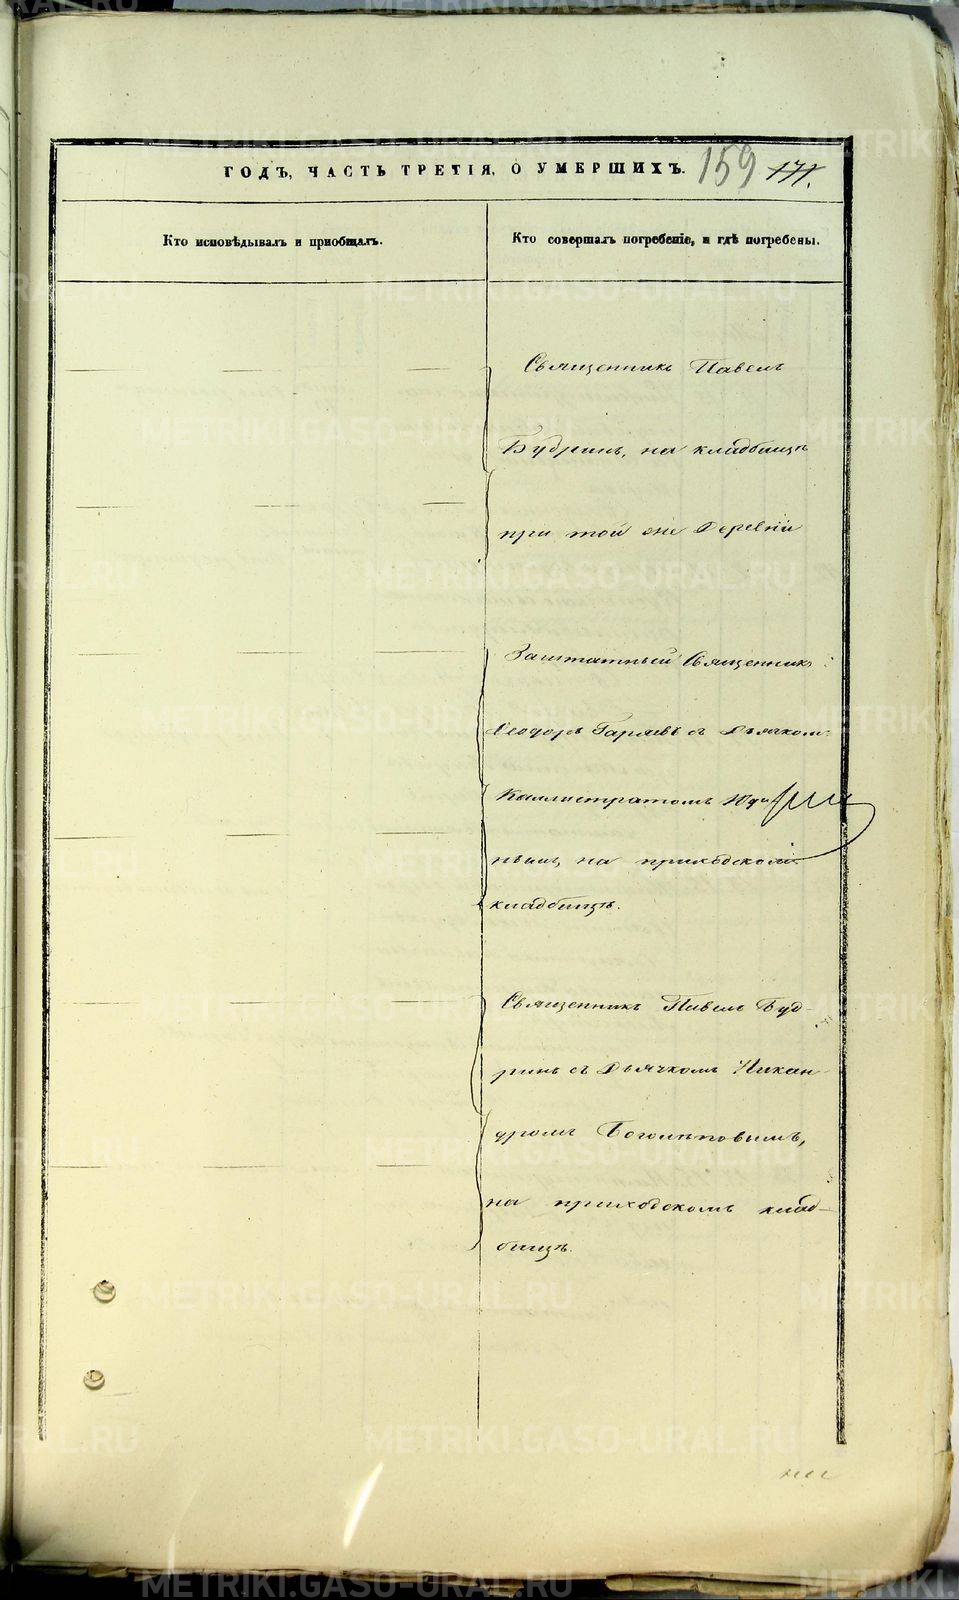 ГОДЪ, ЧАСТЬ ТРЕТІЯ, О УМЕРШИХЪ. 159 171.
Кто исповѣдывалъ и пріобщалъ.
Кто совершалъ погребеніе, и гдѣ погребены.
Священникъ Павелъ
Будринъ, на кладбищѣ
при той же деревни
Заштатный Священникъ
Ѳеодоръ Гаряевъ съ Дьячкомъ
Каллистратомъ Юди
нымъ на приходскомъ
кладбищѣ.
Священникъ Павелъ Буд-
ринъ съ Дьячкомъ Никан
дромъ Боголѣповымъ,
на приходскомъ клад-
бищѣ.
METRIKI.GASO-URAL.RU